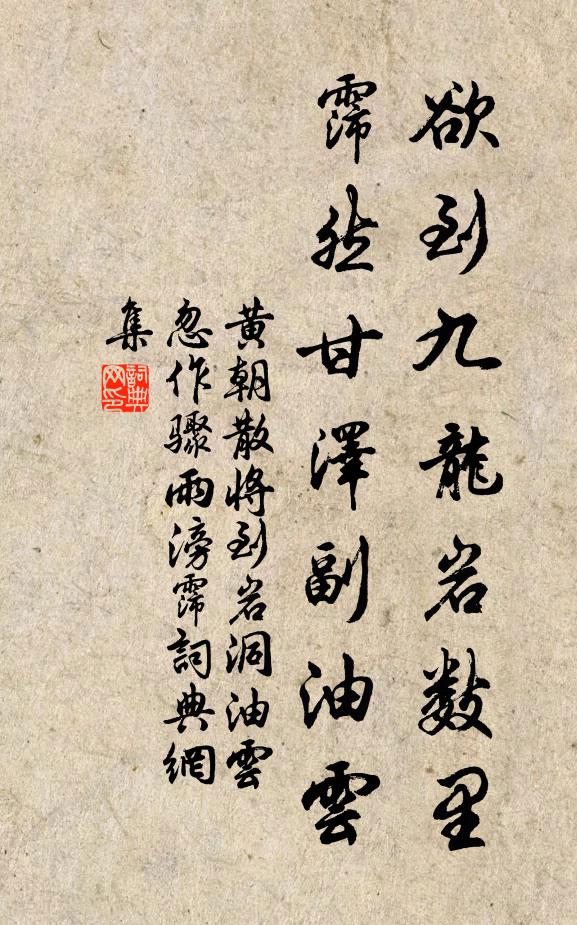 欲到九龍岩数里
霈然甘澤副油雲
黄朝散將到岩洞油雲
忽作驟雨滂霈詞典網
集
詞典
网印